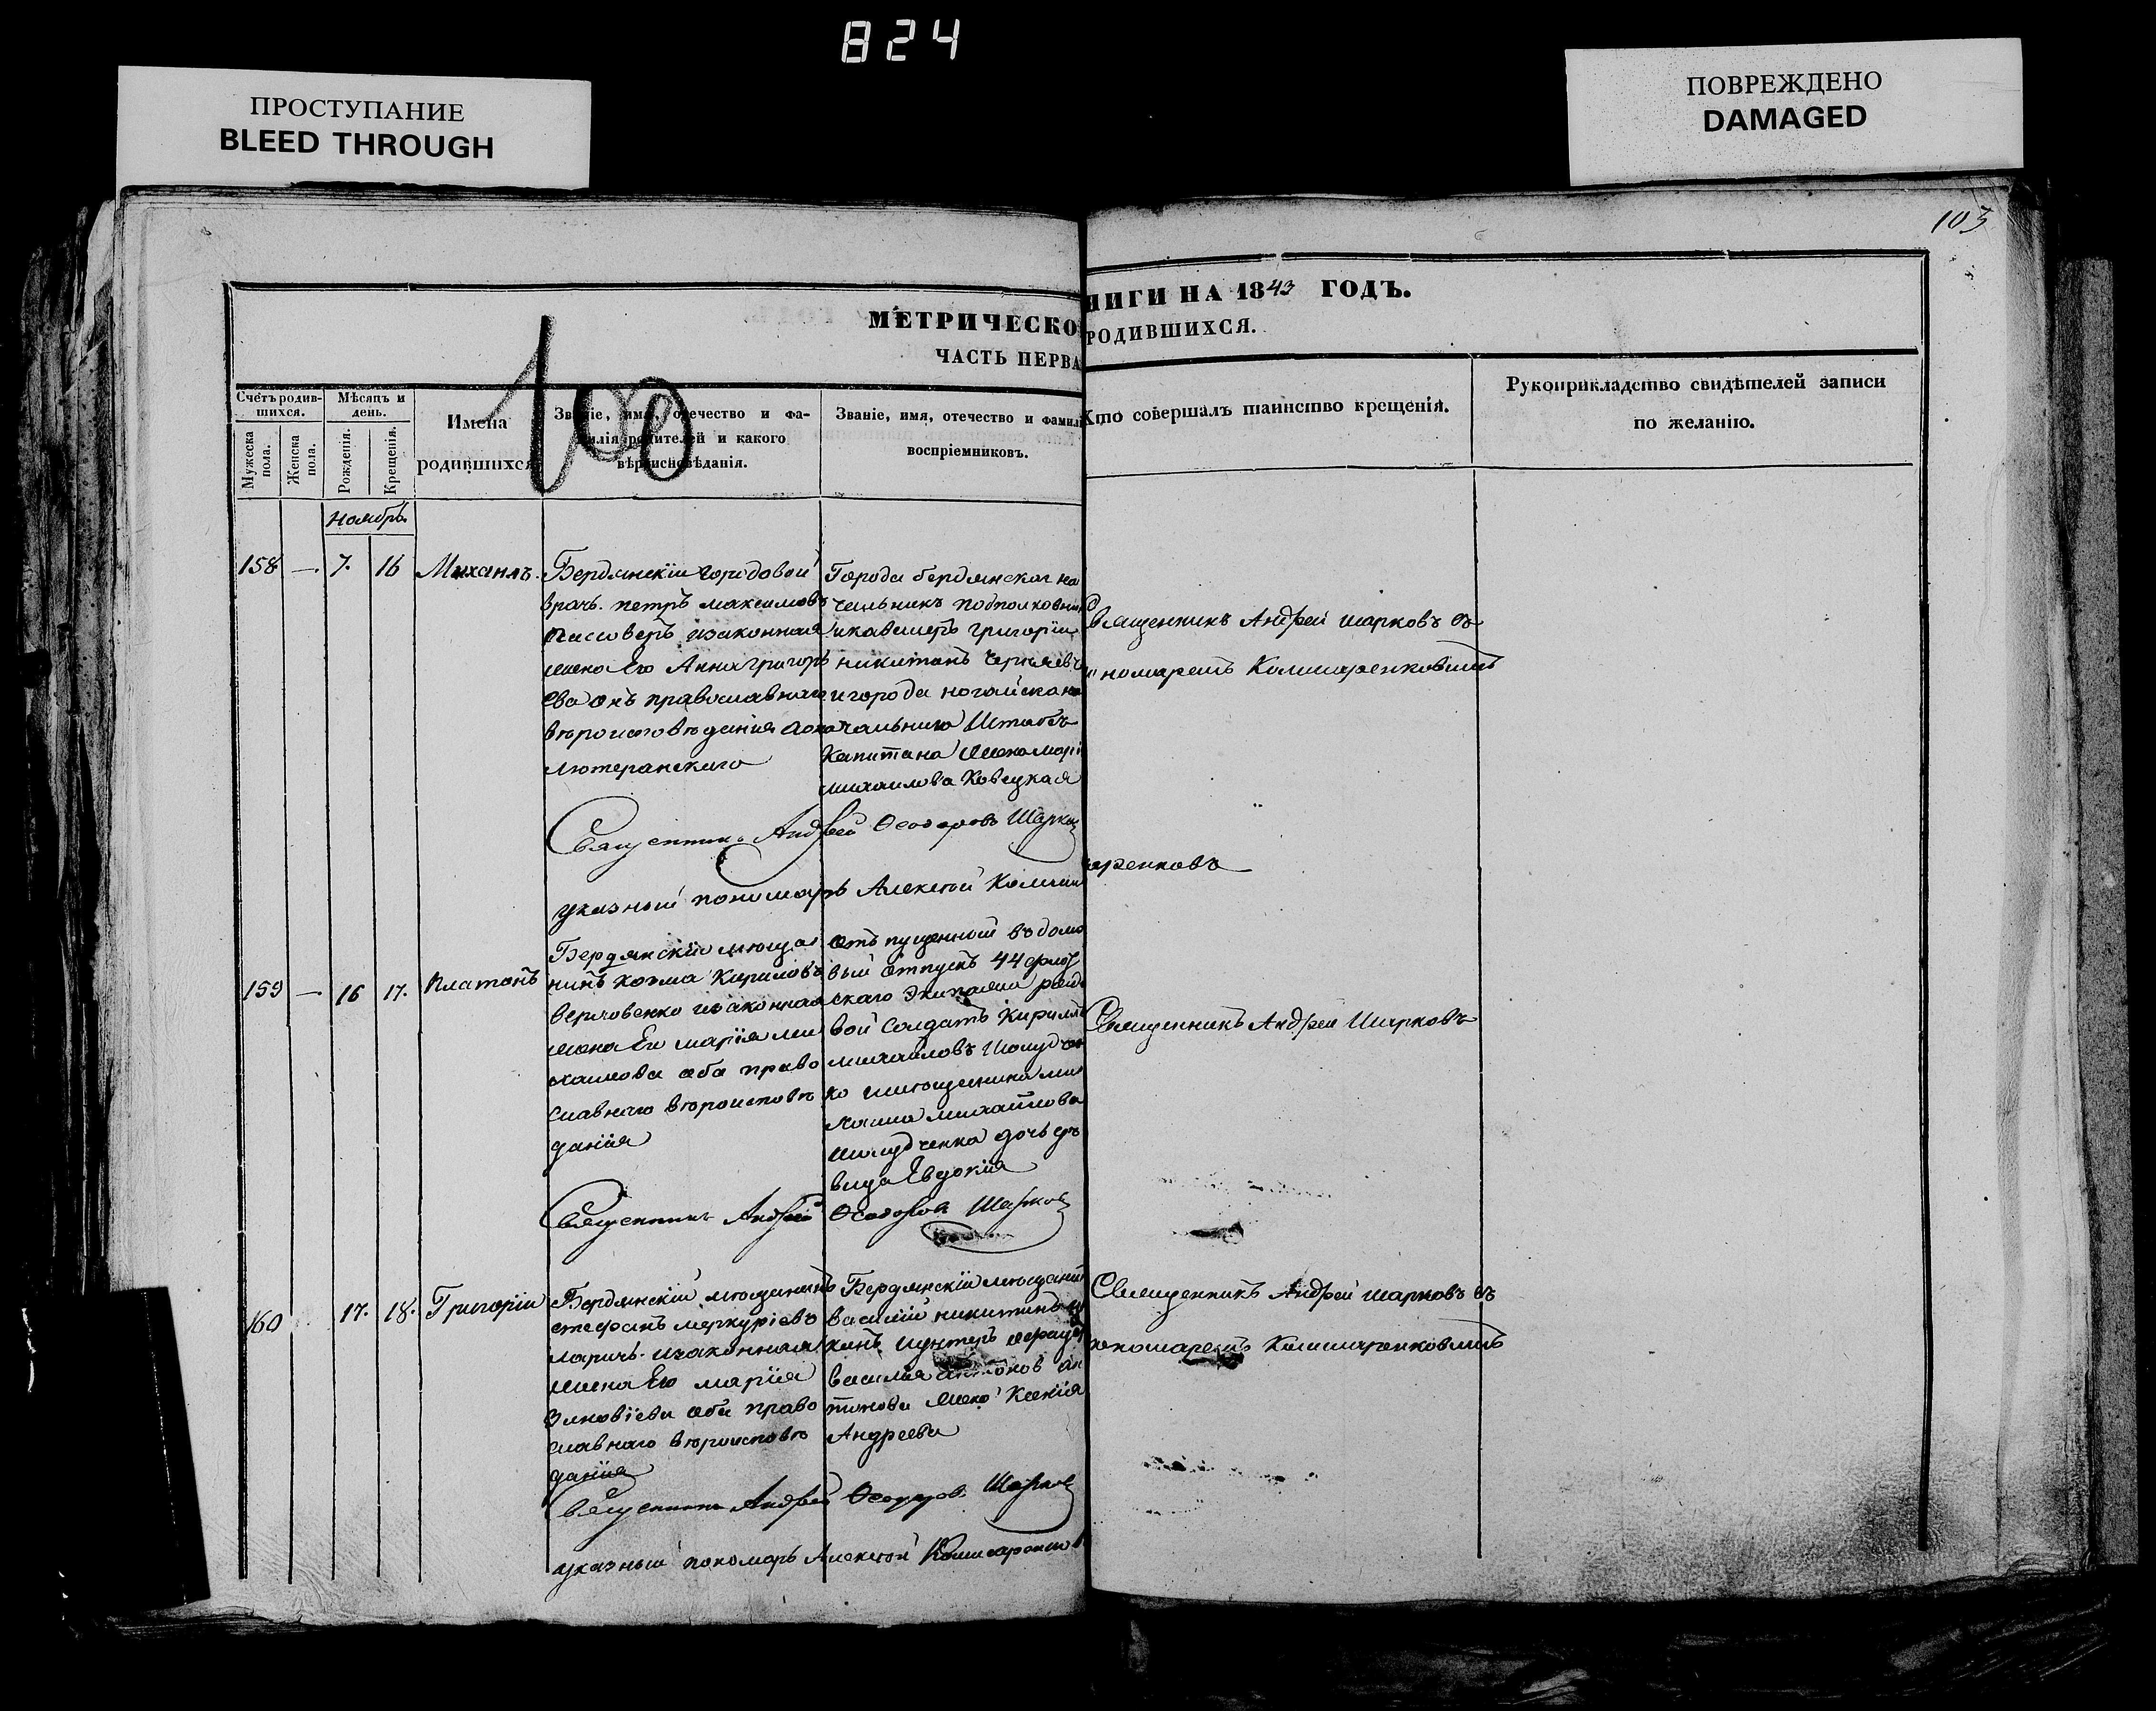 824
ПРОСТУПАНИЕ
BLEED THROUGH
ПОВРЕЖДЕНО
DAMAGED
103
МЕТРИЧЕСКО
НИГИ НА 1843 ГОДЪ.
ЧАСТЬ ПЕРВА
РОДИВШИХСЯ.
100
Счетъ родив-
шихся.
Мужеска
пола.
Женска
пола.
Мѣсяцъ и
день.
Рожденія.
Крещенія.
Имена
родившихся
Званіе, имя, отечество и фа-
милія родителей и какого
вѣроисповѣданія.
Званіе, имя, отечество и фамилі
воспріемниковъ.
Кто совершалъ таинство крещенія.
Рукоприкладство свидѣтелей записи
по желанію.
ноябрь
158 — 7. 16 Михаилъ.
Бердянскій городовой
врачь. петръ максимовъ
изаконная
жена Его Анна григорь
ева онъ православнаго
вѣроисповѣданія а она
лютеранскаго
Города бердянска на
чальникъ подполковни
икавалеръ григорій
никитинъ Черняевъ
игорода ногайска на
чальника Штабсъ
Капитана жена марі
михаилова
Священникъ Андрей шарковъ съ
пономаремъ
Священникъ Андрей Ѳеодоровъ Шарков
указный пономарь Алексѣй
аренковъ
159 — 16 17. Платонъ
Бердянскій мѣща
нинъ козма Кириловъ
изаконная
жена Его марія ми
хаилова оба право
славнаго вѣроисповѣ
данія
отъ пущенный въ домо
вый отпускъ 44 флот
скаго Экипажа рядо
вой Солдатъ Кирилъ
михаиловъ
ко имѣщанина ми
хаила михайлова
дочь дѣ
вица Евдокія
Священникъ Андрей Шарковъ
Священникъ Андрей Ѳеодоровъ Шарков
160 17. 18. Григорій
Бердянскій мѣщанинъ
стефанъ меркуріевъ
ларичь. изаконная
жена Его марія
Зиновіева оба право
славнаго вѣроисповѣ
данія
Бердянскій мѣщани
василій никитинъ
василія антонов ан
тонова жена Ксенія
Андреева
Священникъ Андрей шарковъ съ
пономаремъ
Священникъ Андрей Ѳеодоров. Шарков
указный пономарь Алексѣй